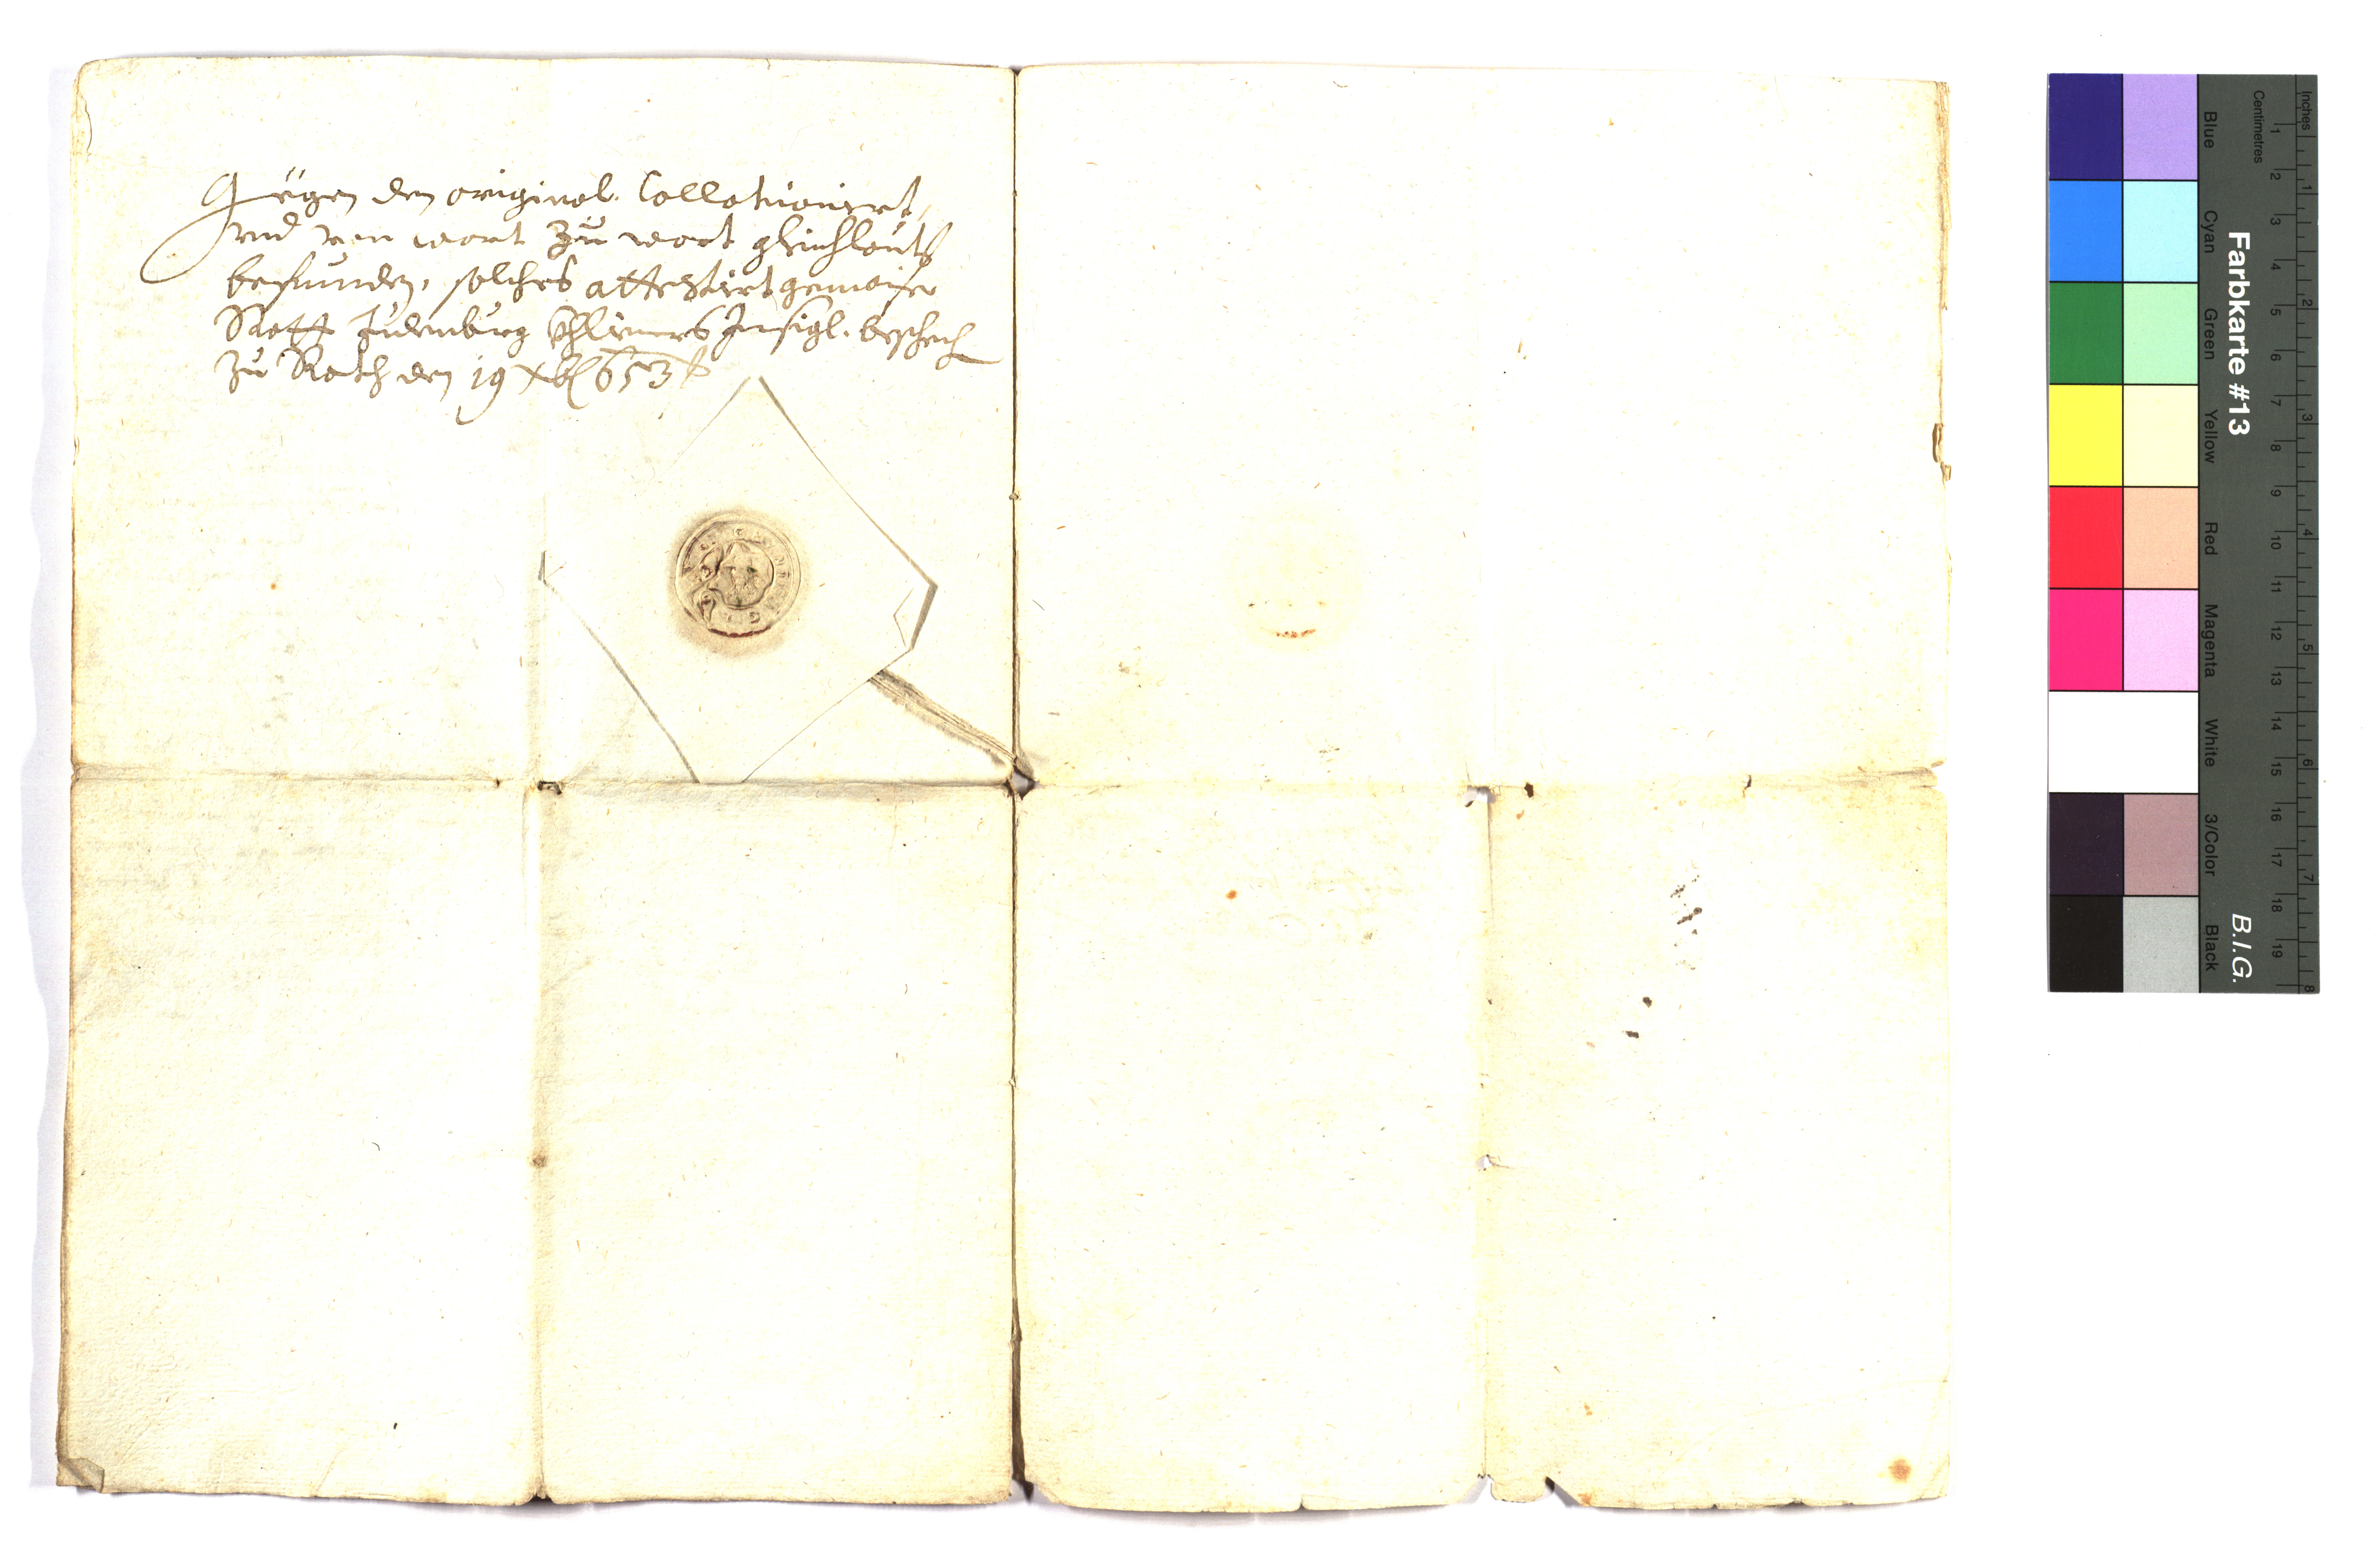 Gegen den original Collationiert,
vnd von wort zu wort gleichlauts
befunden, solches attestirt gemainer
Statt Judenburg Insigl. beschech
zu Rath den 19 Xb 653
Farbkarte #13
B.I.G.
Blue
Cyan
Green
Yellow
Red
Magenta
White
3/Color
Black
Centimetres
1 2 3 4 5 6 7 8 9 10 11 12 13 14 15 16 17 18 19
Inches
1 2 3 4 5 6 7 8